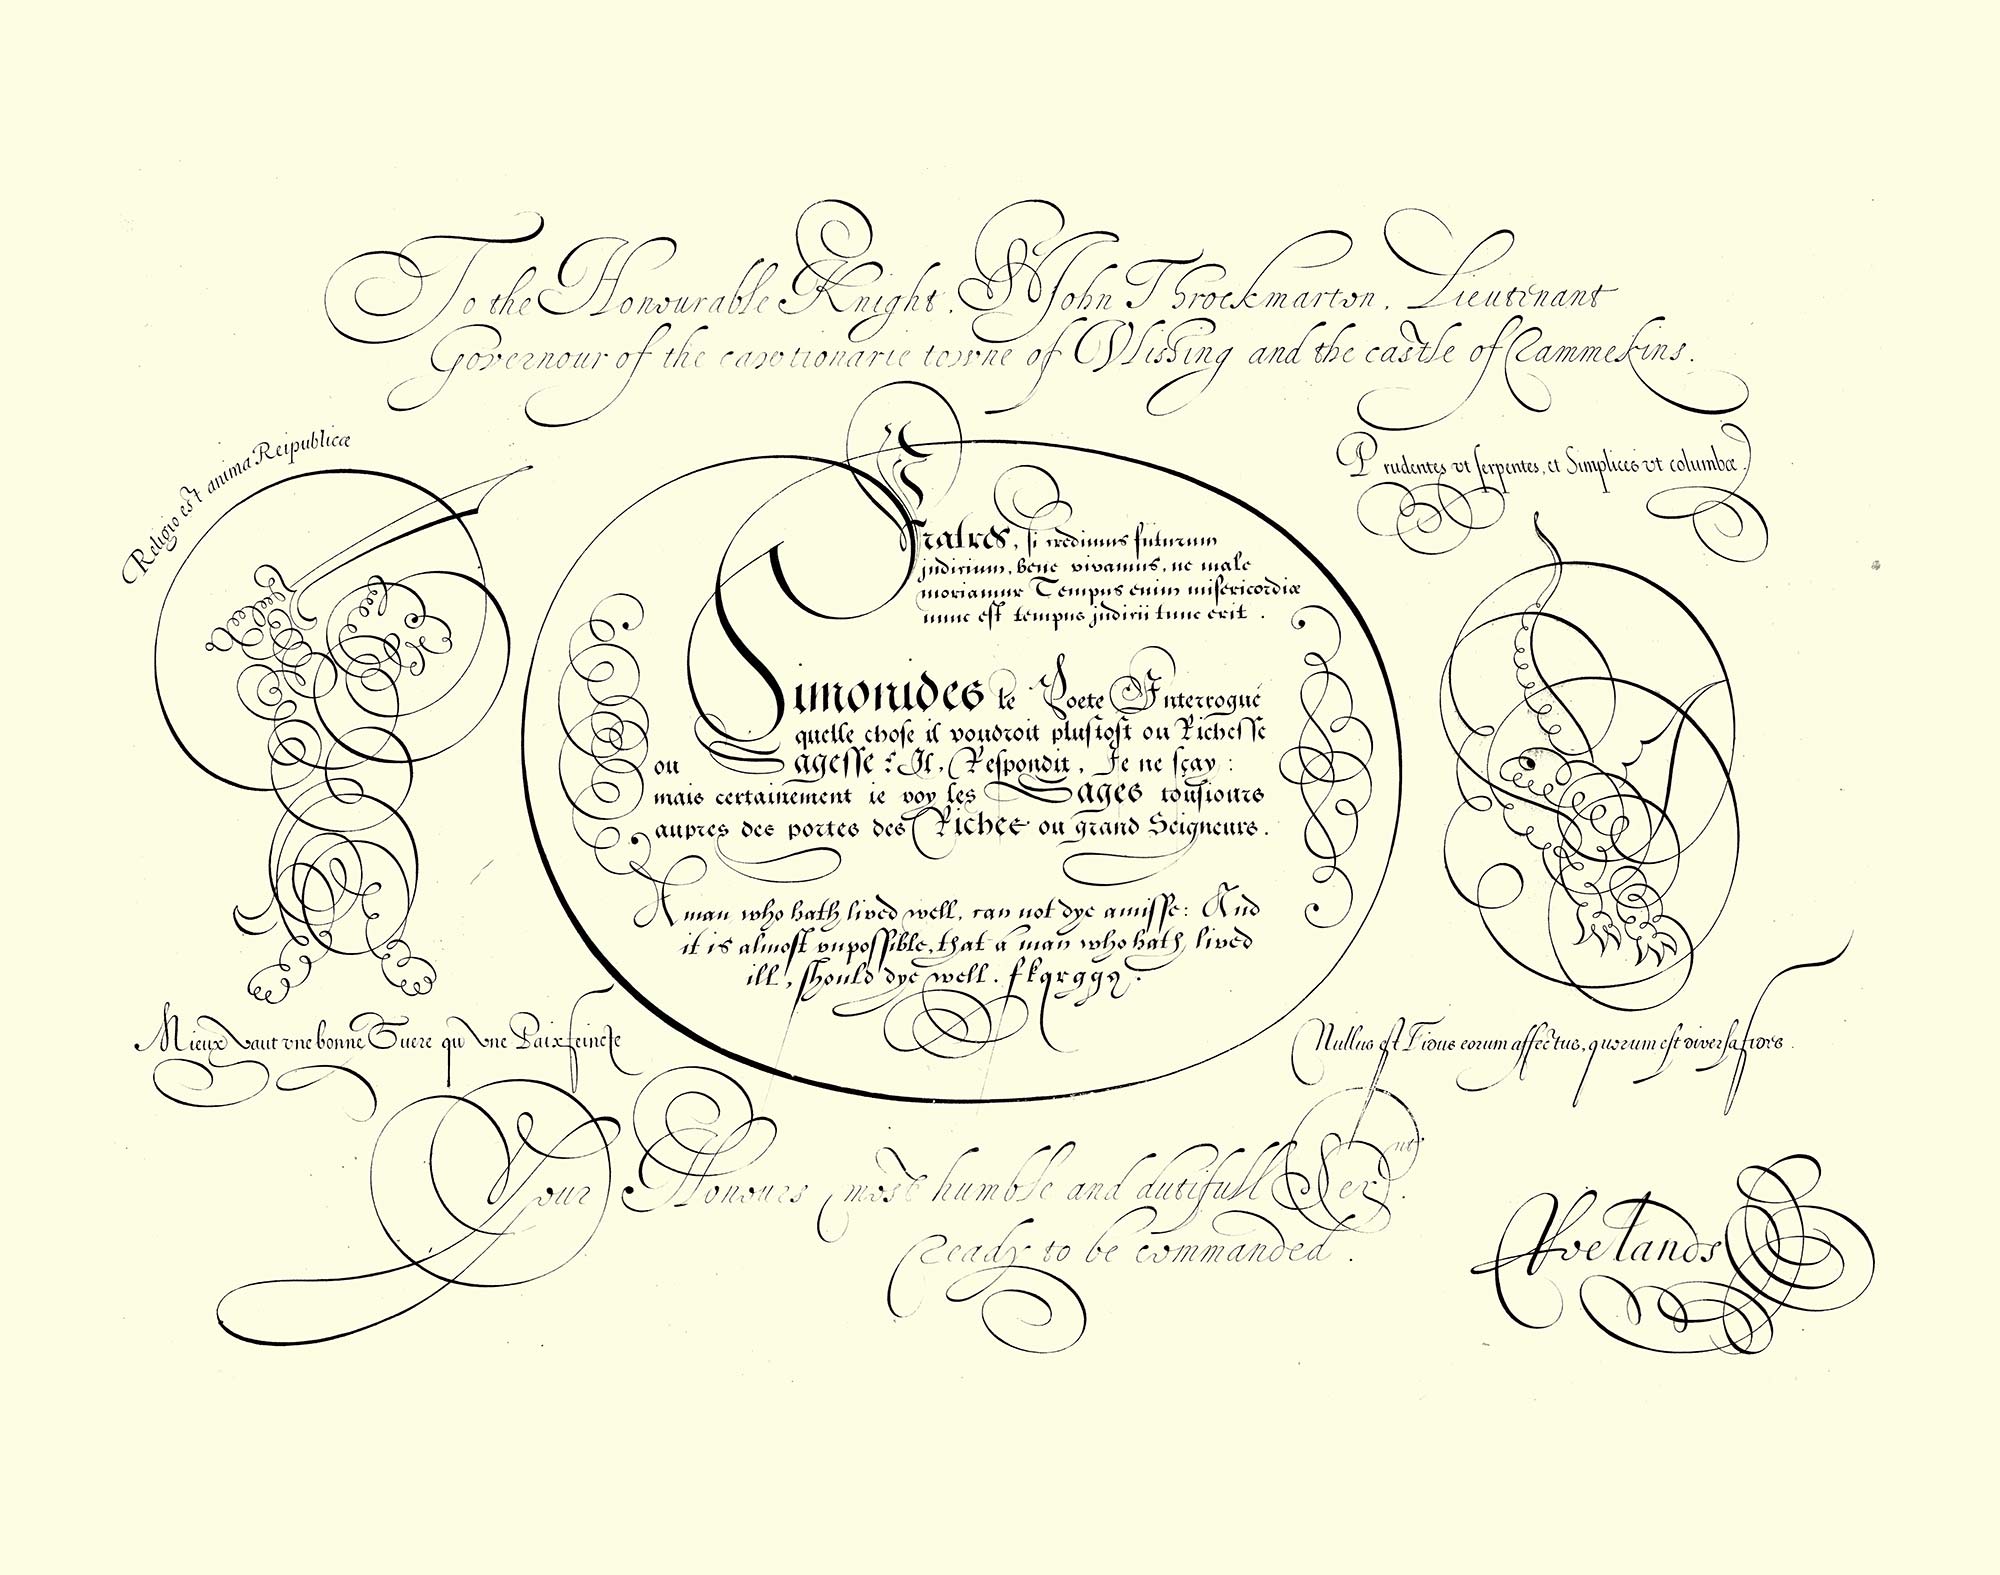 To the Honourable Knight. Sr John Throckmarton. Lieutenant
Governour of the cawtionarie towne of Vlissing and the castle of Rammekins.
Religio est anima Reipublicæ
Prudentes vt serpentes, et Simplices vt columbæ.
Fratres, si credimus futurum
judicium, bene vivamus, ne male
moriamur Tempus enim misericordiæ
nunc est tempus judicii tunc erit.
Simonides le Poete Interrogué
quelle chose il voudroit plustost ou Richesse
ou Sagesse: Il, Respondit, Je ne sçay:
mais certainement ie voy les Sages tousiours
aupres des portes des Riches ou grand Seigneurs.
A man who hath lived well, can not dye amisse: And
it is almost vnpossible, that a man who hath lived
ill, should dye well. fkqrggy.
Mieux vaut vne bonne Guere qu vne Paix feincte
Nullus est Fidus eorum affectus, quorum est diversa fides.
Your Honours most humble and dutifull Servnt.
Ready to be commanded.
JvVelands